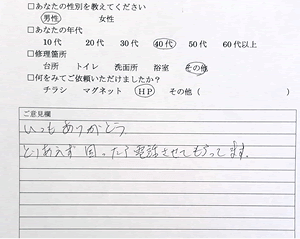 □あなたの性別を教えてください
男性 女性
□あなたの年代
10代 20代 30代 40代 50代 60代以上
□修理箇所
台所 トイレ 洗面所 浴室 その他
□何をみてご依頼いただけましたか？
チラシ マグネット HP その他（ ）
ご意見欄
いつもありがとう
とりあえず困ったら電話させてもらってます。